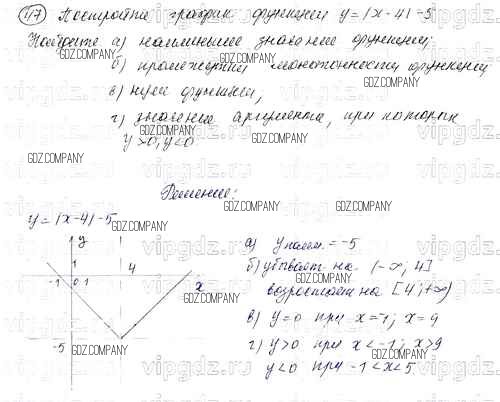 417 Постройте график функции y=|x-4|-5
Найдите а) наименьшее значение функции;
б) промежутки монотонности функции
в) нули функции,
г) значение аргумента, при котором
y>0, y<0
Решение:
y=|x-4|-5
y
1
-1 0 1 4 x
-5
а) y наим. = -5
б) убывает на (-∞; 4]
возрастает на [4; +∞)
в) y=0 при x=-1; x=9
г) y>0 при x<-1; x>9
y<0 при -1<x<5
GDZ.COMPANY
vipgdz.ru